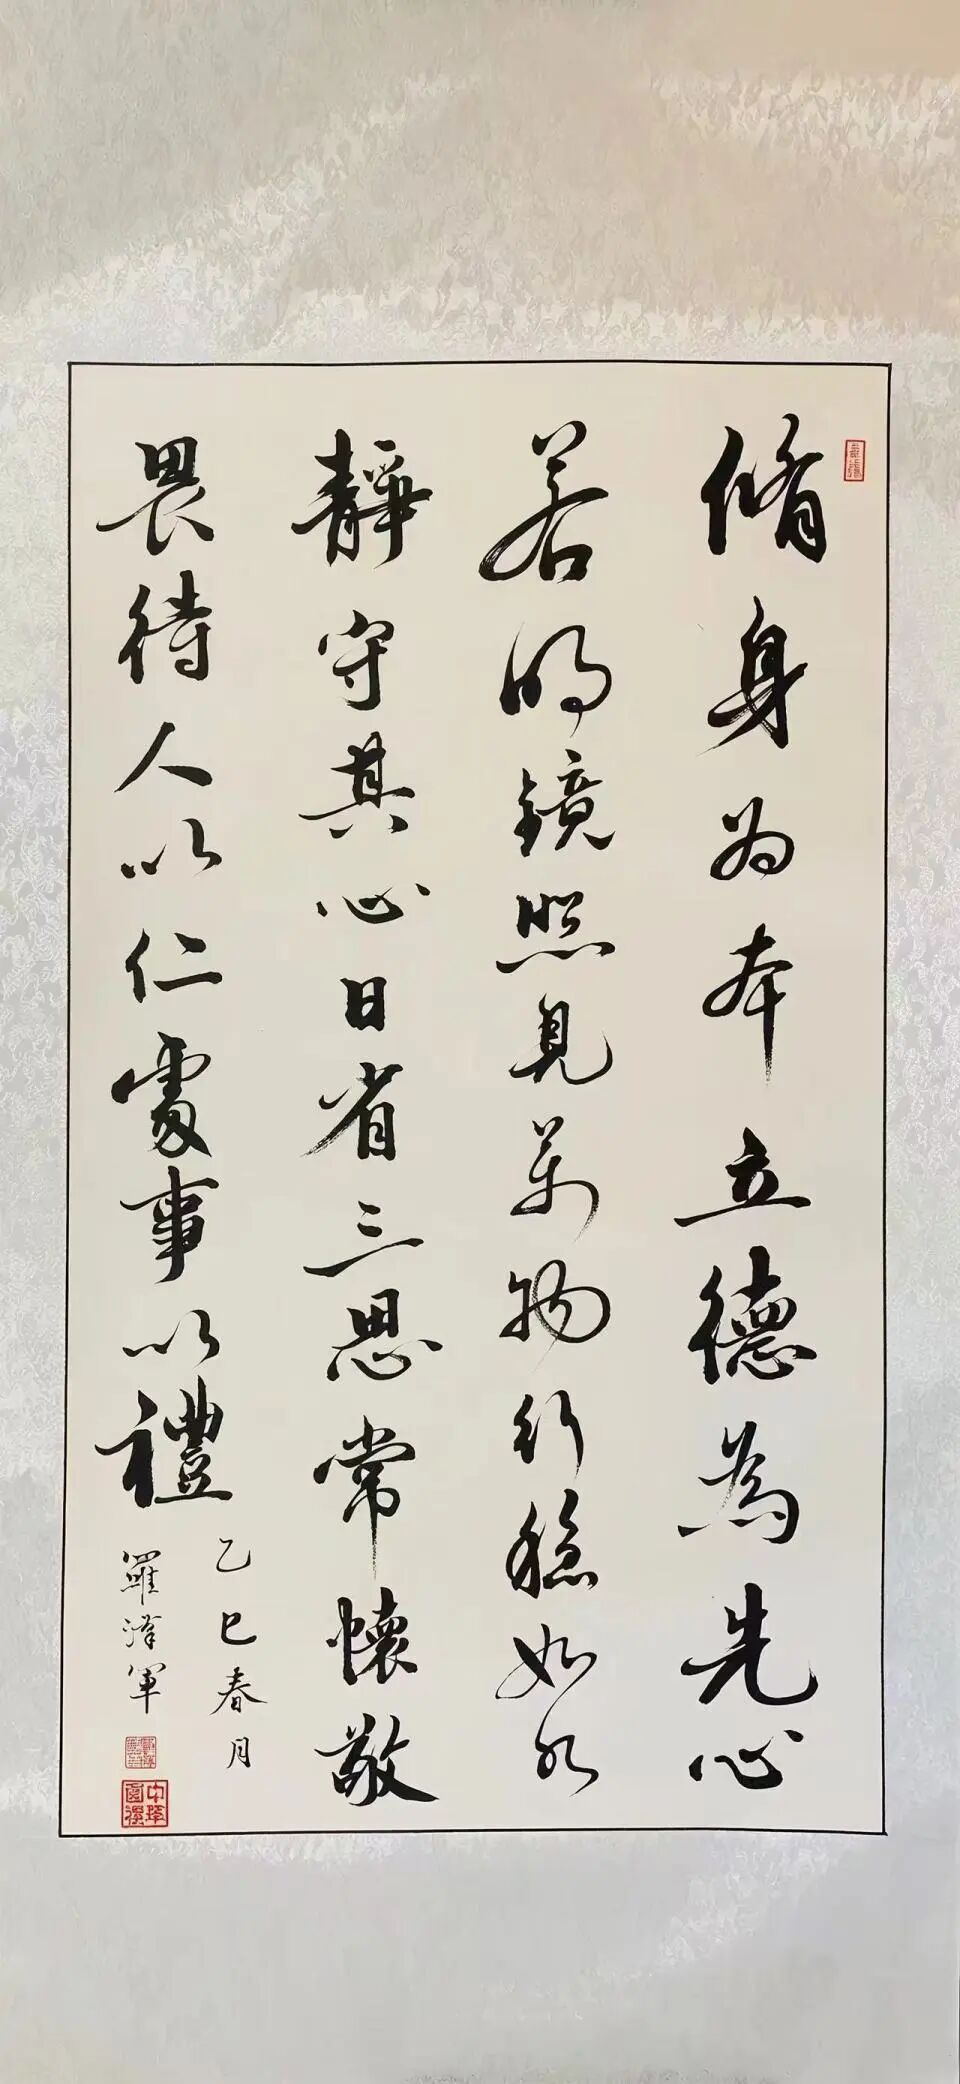 脩身为本立德為先心
若明镜照見萬物行稳如水
靜守其心日省三思常懷敬
畏待人以仁處事以禮
乙巳春月
羅澤軍